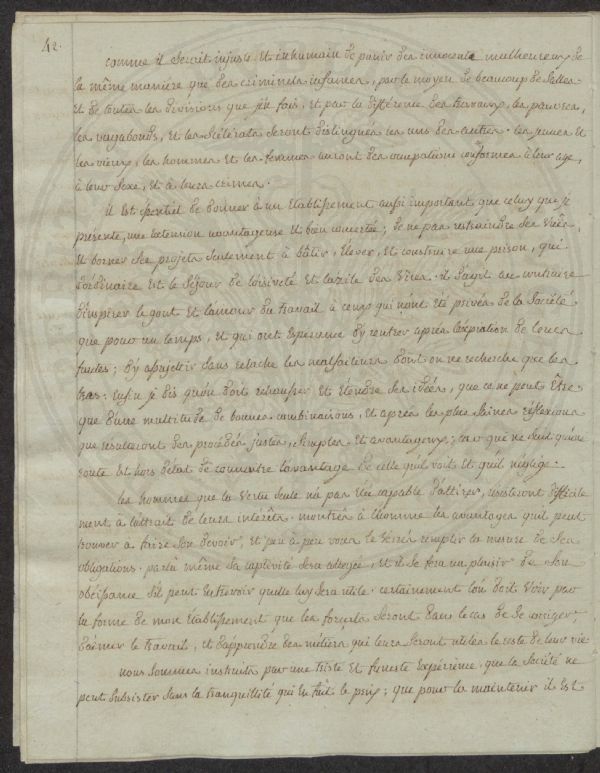 42.
comme il seroit injuste et inhumain de punir des innocents malheureux de
la même manière que des criminels infames, par le moyen de beaucoup de salles
et de toutes les divisions que j'ai fais, et par la différence des travaux, les pauvres,
les vagabonds, et les scélérats seront distingués les uns des autres. les jeunes et
les vieux, les hommes et les femmes auront des occupations conformes à leur age,
à leur sexe, et à leurs crimes.
il est essentiel de donner à un Etablissement aussi important que celuy que je
présente, une extension avantageuse et bien concertée; de ne pas restraindre ses vues,
et borner ses projets seulement à bâtir, élever, et construire une prison, qui
d'ordinaire est le séjour de l'oisiveté et l'azile des vices. il s'agit au contraire
d'inspirer le gout et l'amour du travail à ceux qui n'ont été privés de la Société
que pour un temps, et qui ont espérance d'y rentrer après l'expiation de leurs
fautes; d'y assujetir sans relache les malfaiteurs dont on ne recherche que les
bras. enfin je dis qu'on doit rehausser et étendre ses idées, que ce ne peut être
que d'une multitude de bonnes combinaisons, et après les plus saines réflexions
que resulteront des procédés justes, simples et avantageux; car que ne suit qu'une
route est hors d'état de connaitre l'avantage de celle qu'il voit et qu'il néglige.
les hommes que la vertu seule n'a pas été capable d'attirer, résisteront difficile
ment à l'attrait de leurs interêts. montrés à l'homme les avantages qu'il peut
trouver à faire son devoir, et peu à peu vous le verrés remplir la mesure de ses
obligations. par là même sa captivité sera allegée, et il se fera un plaisir de son
obéissance s'il peut entrevoir qu'elle luy sera utile. certainement l'on doit voir par
la forme de mon établissement que les forçats seront dans le cas de se corriger,
d'aimer le travail, et d'apprendre des métiers qui leurs seront utiles le reste de leur vie
nous sommes instruits par une triste et funeste expérience, que la société ne
peut subsister sans la tranquillité qui en fait le prix; que pour la maintenir il est